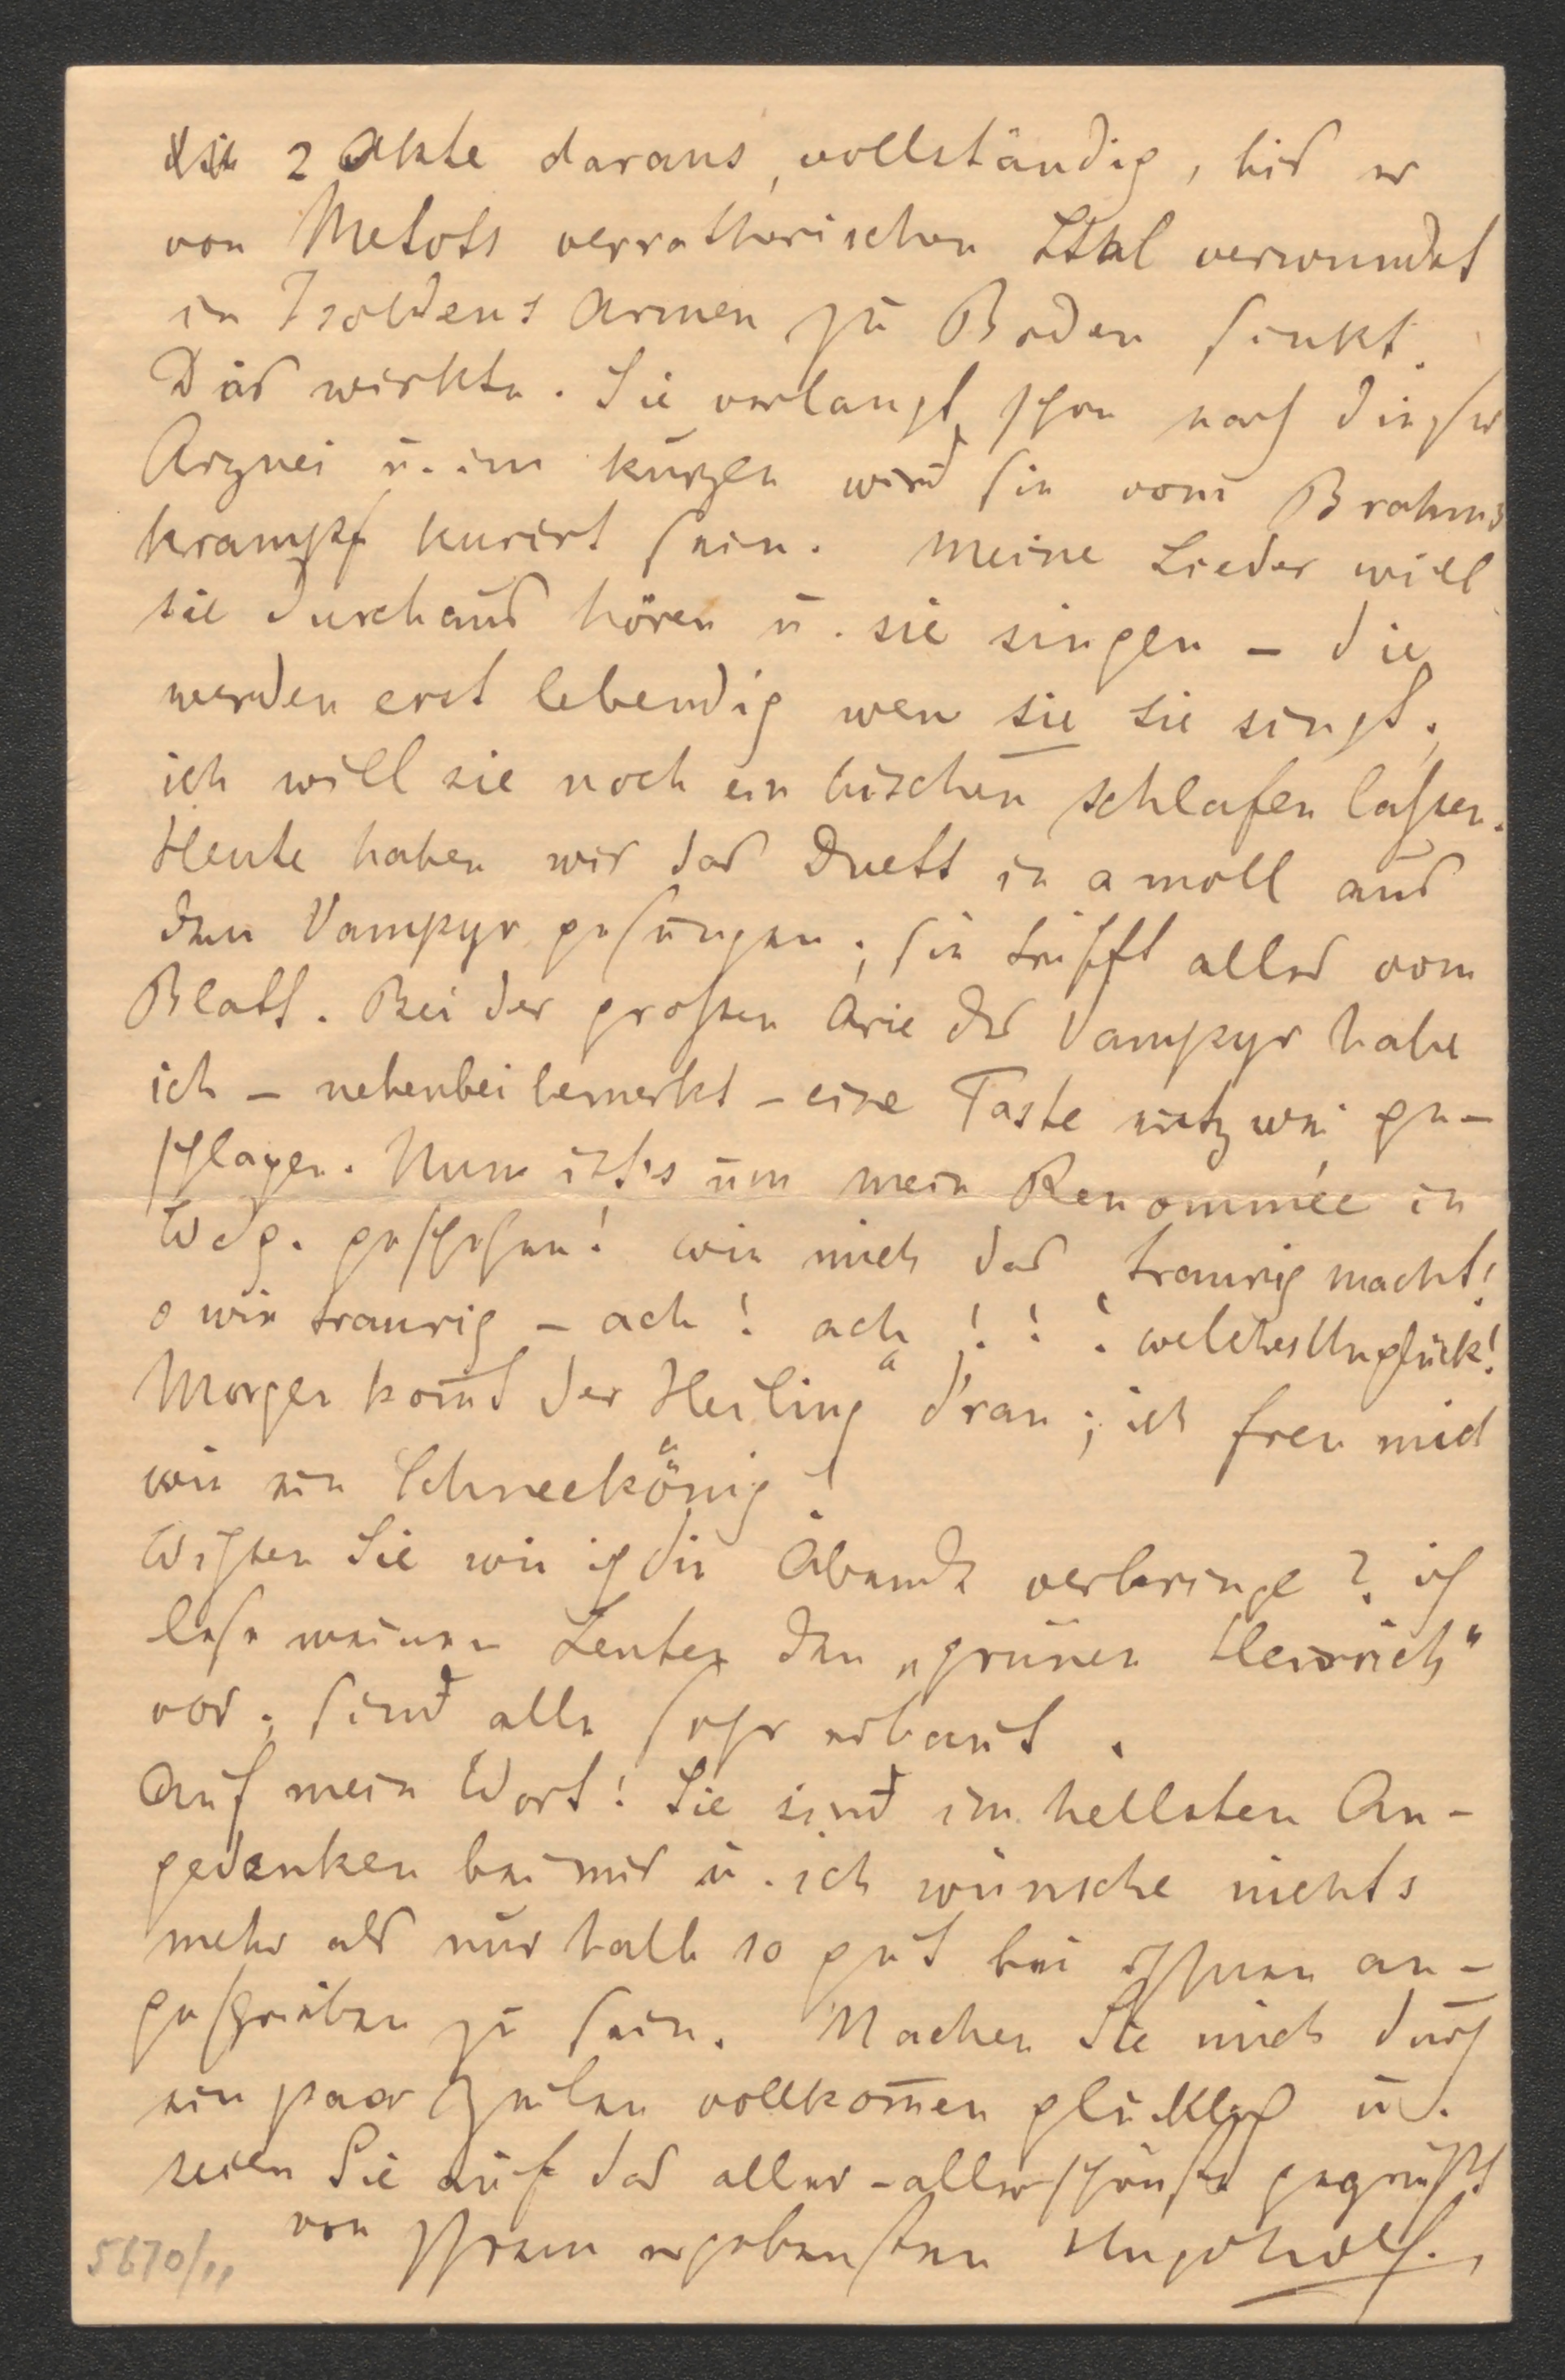 die 2 Akte daraus, vollständig, bis er
von Melots verrätherischen Stal verwundet
in Isoldens Armen zu Boden sinkt.
Das wirkte. Sie verlangt schon nach dieser
Arznei u. im kurzen wird sie vom Brahms
krampf kurirt sein. Meine Lieder will
sie durchaus hören u. sie singen – die
werden erst lebendig wen̄ sie sie singt;
ich will sie noch ein bischen schlafen laßen.
Heute haben wir das Duett in a moll aus
dem Vampyr gesungen; sie trifft alles vom
Blatt. Bei der großen Arie des Vampyr habe
ich – nebenbei bemerkt – eine Taste entzwei ge-
schlagen. Nun ist's um mein Renommée in
Wdg. geschehen! wie mich das traurig macht!
o wie traurig – ach! ach!!! welches Unglück!
Morgen kom̄t der Heiling" d'ran; ich freu mich
wie ein Schneekönig!
Wißen Sie wie ich die Abende verbringe? ich
lese meinen Leuten den „grünen Heinrich"
vor; sind alle sehr erbaut.
Auf mein Wort! Sie sind im hellsten An-
gedenken bei mir u. ich wünsche nichts
mehr als nur halb so gut bei Ihnen an-
geschrieben zu sein. Machen Sie mich durch
ein paar Zeilen vollkom̄en glücklich u.
seien Sie auf das aller-allerschönste gegrüßt
von Ihrem ergebensten Hugo Wolf.
5670/11